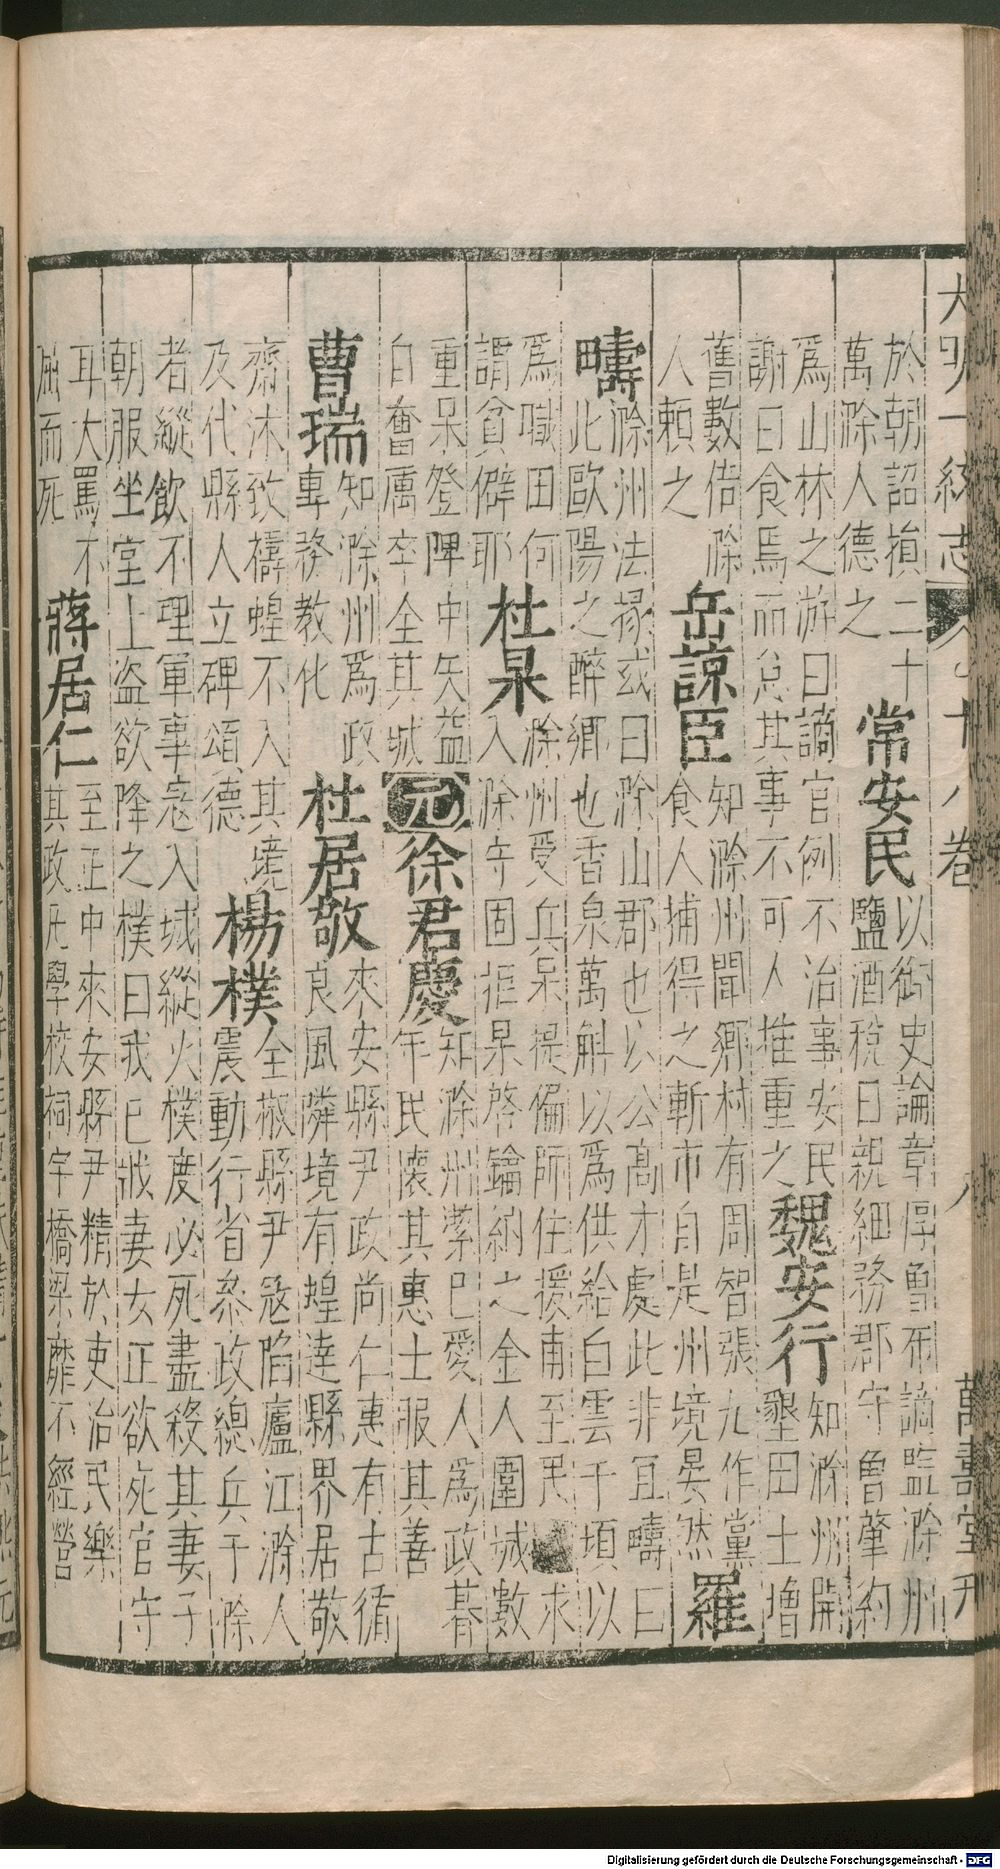 大明一統志 十八卷 八 萬壽堂刊
於朝詔損二十
萬滁人德之
常安民
以御史論章惇曾布謫監滁州
鹽酒稅日親細務郡守曾肇約
爲山林之游曰謫官例不治事安民
謝曰食焉而怠其事不可人推重之
魏安行
知滁州開
墾田土增
舊數倍滁
人賴之
岳諒臣
知滁州聞鄉村有周智張九作黨
食人捕得之斬市自是州境晏然
羅
疇
滁州法掾或曰滁山郡也以公高才處此非宜疇曰
此歐陽之醉鄉也香泉萬斛以爲供給白雲千頃以
爲職田何
謂貧僻耶
杜杲
滁州受兵杲提偏師往援甫至民求
入滁守固拒杲啓鑰納之金人圍城數
重杲登陴中矢益
自奮厲卒全其城
元
徐君慶
知滁州潔已愛人爲政暮
年民懷其惠士服其善
曹瑞
知滁州爲政
專務教化
杜居敬
來安縣尹政尚仁惠有古循
良風隣境有蝗達縣界居敬
齋沐致禱蝗不入其境
及代縣人立碑頌德
楊樸
全椒縣尹寇陷廬江滁人
震動行省叅政總兵于滁
者縱飲不理軍事寇入城縱火樸度必死盡殺其妻子
朝服坐堂上盜欲降之樸曰我已戕妻女正欲死官守
耳大罵不
屈而死
蔣居仁
至正中來安縣尹精於吏治民樂
其政凡學校祠宇橋梁靡不經營
Digitalisierung gefördert durch die Deutsche Forschungsgemeinschaft - DFG